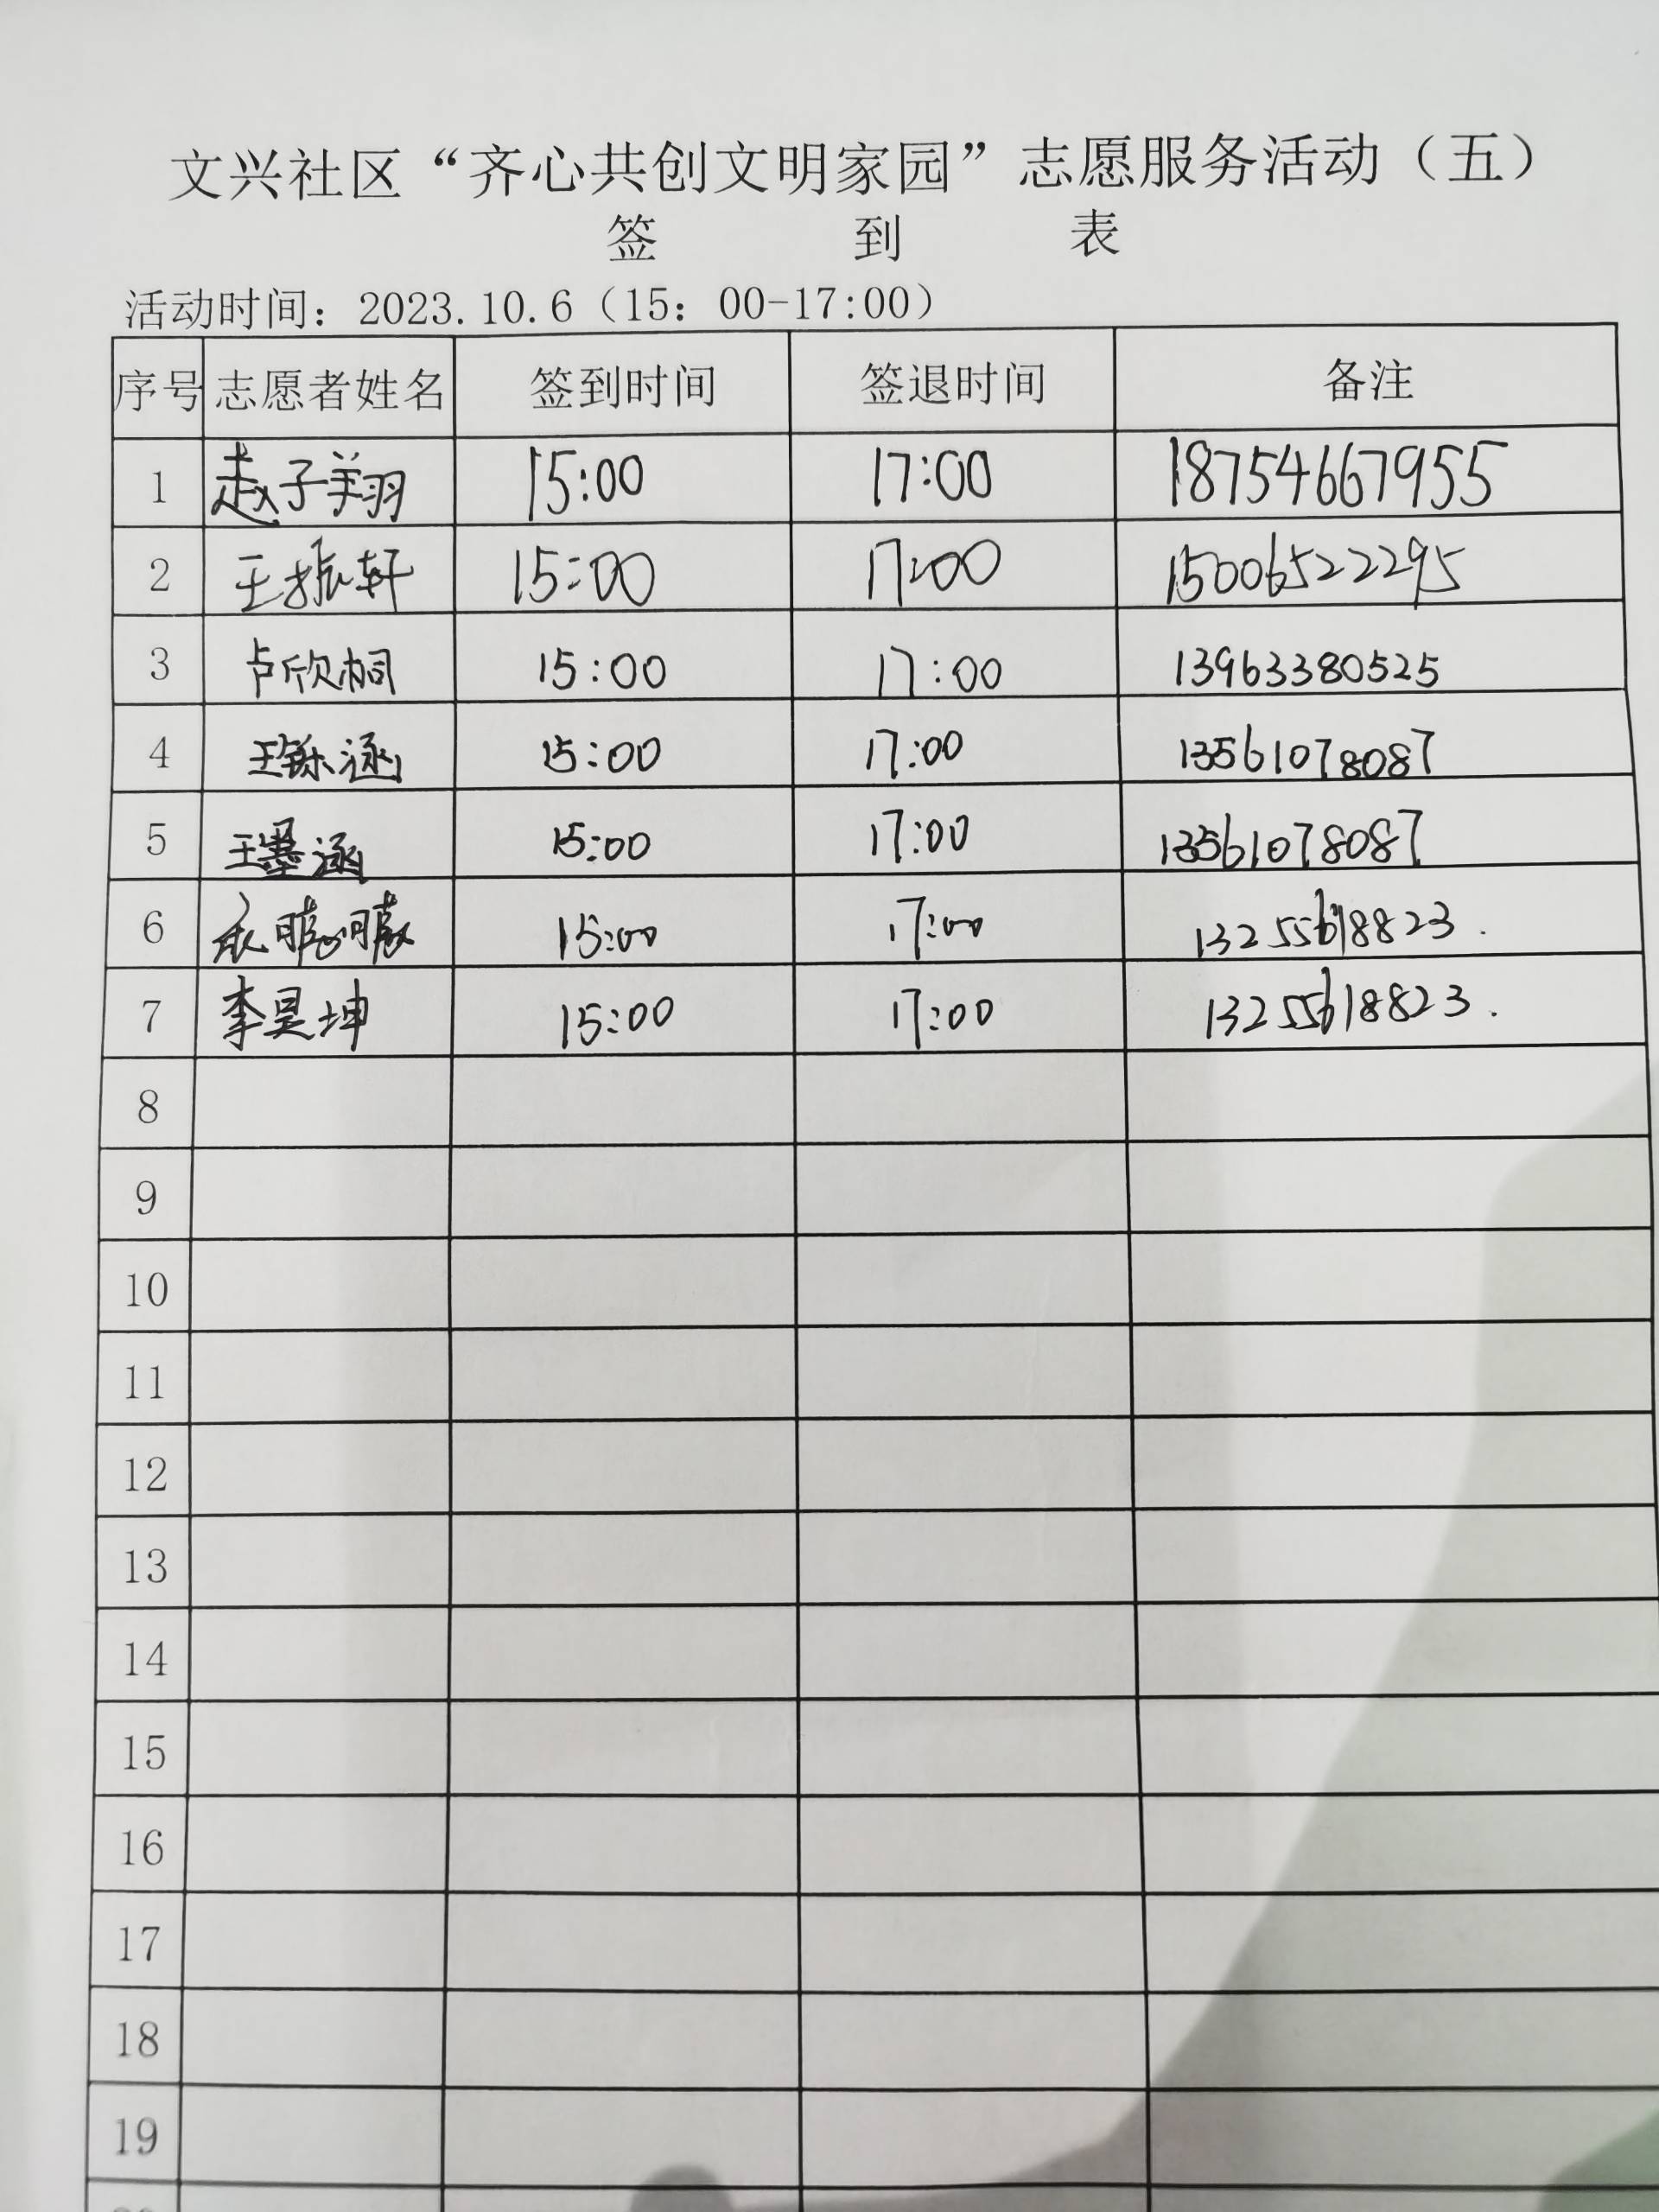 文兴社区“齐心共创文明家园”志愿服务活动（五）
签 到 表
活动时间：2023.10.6（15：00-17:00）
序号 志愿者姓名 签到时间 签退时间 备注
1 赵子翔 15:00 17:00 18754667955
2 王振轩 15:00 17:00 15006522295
3 卢欣桐 15:00 17:00 13963380525
4 王铄涵 15:00 17:00 13561078087
5 王墨涵 15:00 17:00 13561078087
6 15:00 17:00 13255618823.
7 李昊坤 15:00 17:00 13255618823.
8
9
10
11
12
13
14
15
16
17
18
19